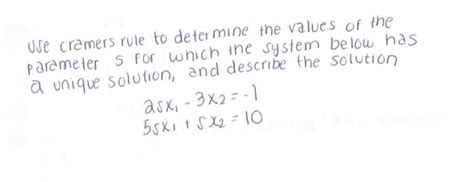 Use cramers rule to determine the values of the
parameter s for which the system below has
a unique solution, and describe the solution
2sx₁ - 3x₂ = -1
5sx₁ + sx₂ = 10